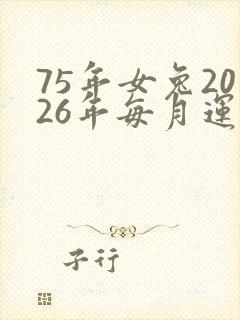 75年女兔20
26年每月運
子行